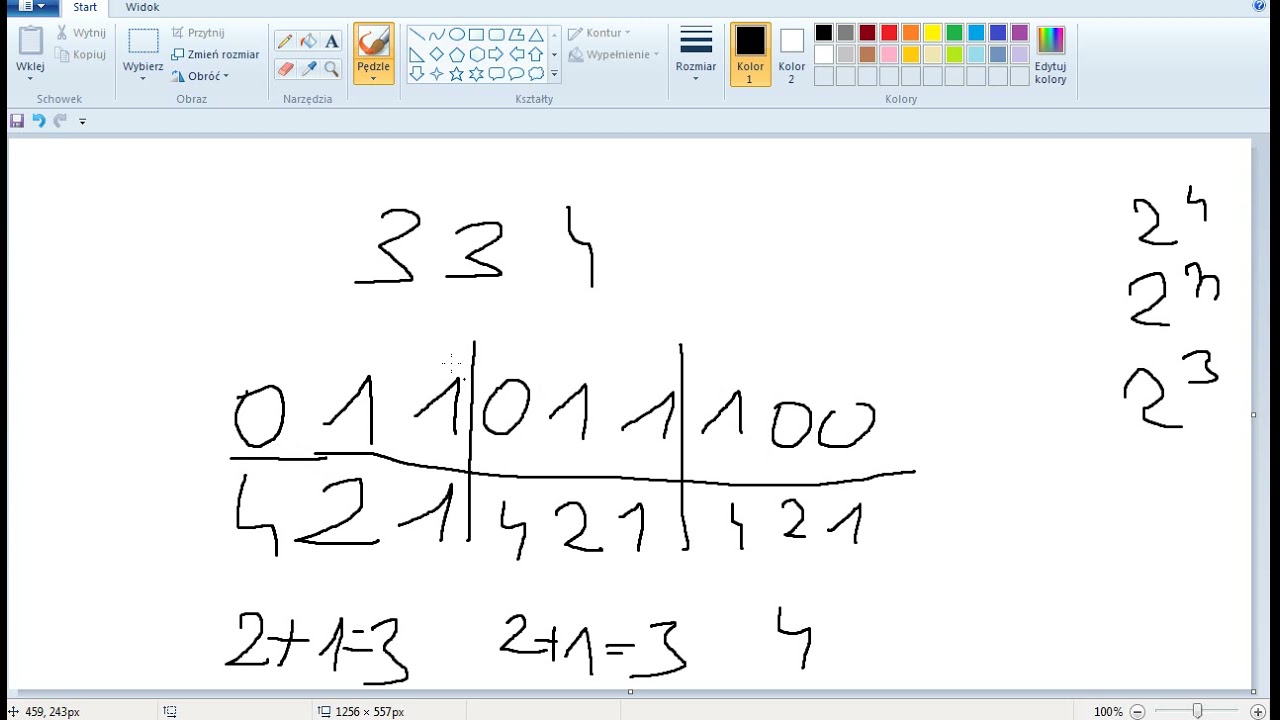 Start Widok
Wklej
Wytnij
Kopiuj
Schowek
Wybierz
Przytnij
Zmień rozmiar
Obróć
Obraz
A
Narzędzia
Pędzle
Kształty
Kontur
Wypełnienie
Rozmiar
Kolor 1
Kolor 2
Edytuj kolory
Kolory
3 3 4
2 4
2 n
2 3
0 1 1 0 1 1 1 0 0
4 2 1 4 2 1 4 2 1
2+1=3 2+1=3 4
459, 243px 1256 × 557px 100%